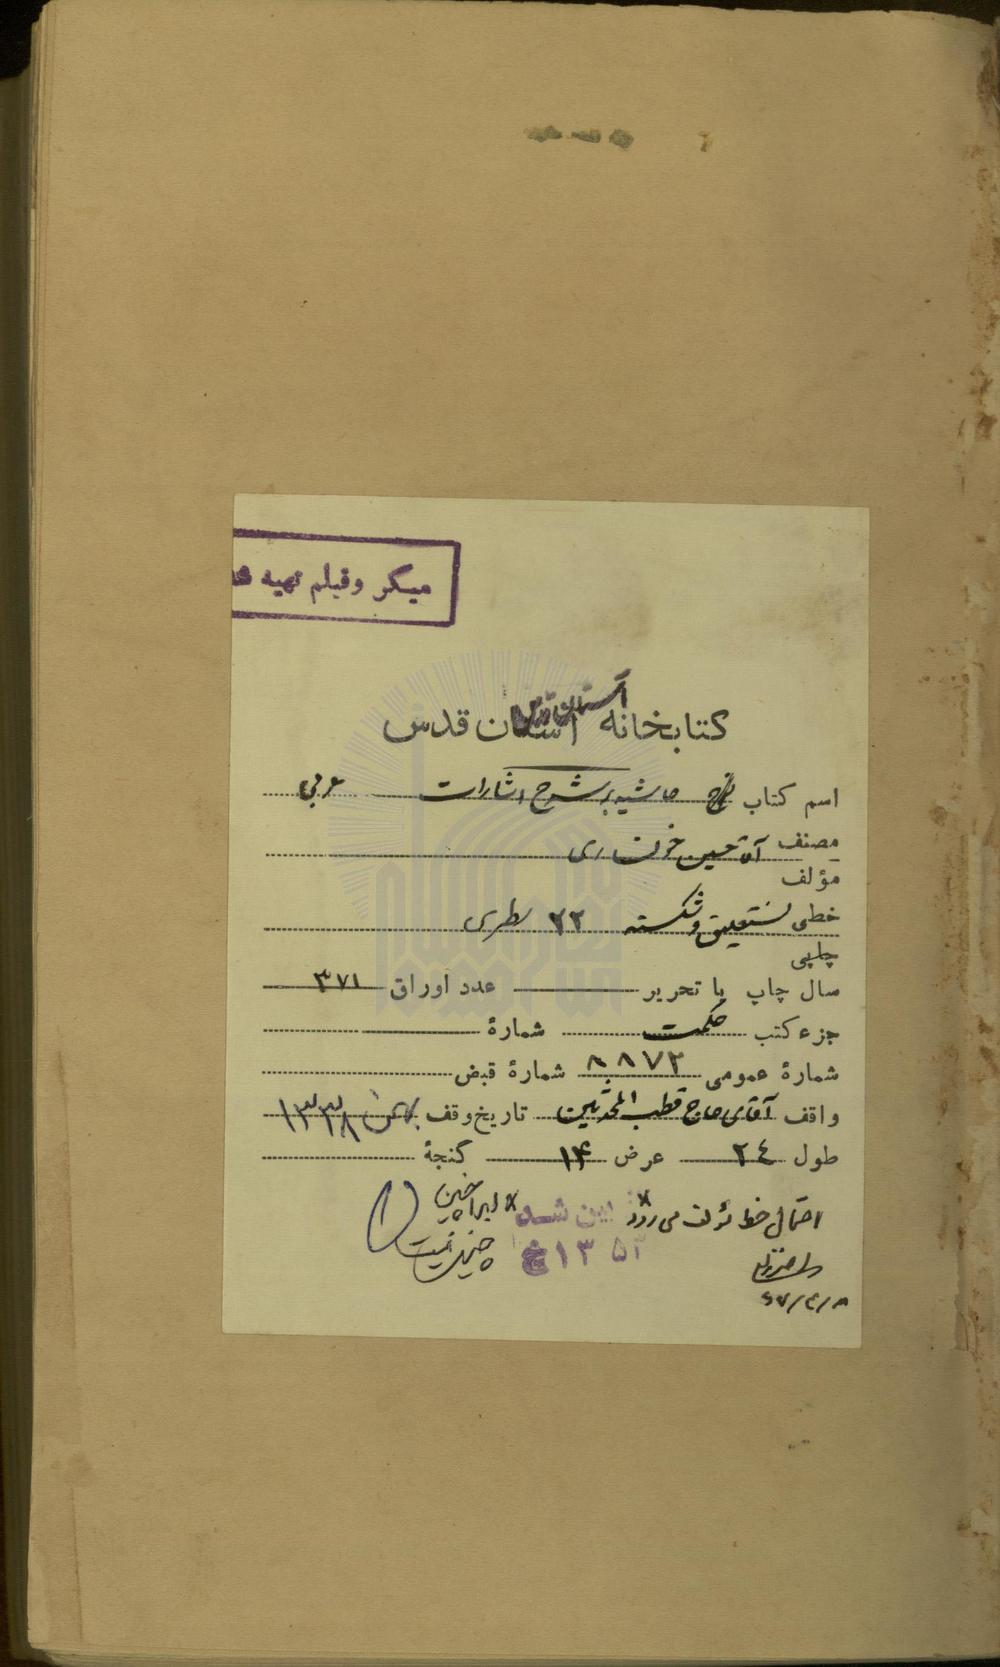 میکروفیلم تهیه شد
کتابخانه آستان قدس
اسم کتاب حاشیه بر شرح اشارات عربی
مصنف آقا حسین خونساری
مؤلف
خطی نستعلیق و شکسته ۲۲ سطری
چاپی
سال چاپ یا تحریر عدد اوراق ۳۷۱
جزء کتب حکمت شمارهٔ
شمارهٔ عمومی ۸۸۷۲ شمارهٔ قبض
واقف آقای حاج قطب المحدثین تاریخ وقف بهمن ۱۳۳۸
طول ۲٤ عرض ۱۴ گنجهٔ
احتمال خط مؤلف می رود
بین شد
۱۳۵۳
چنین نیست
۶۷/۳/۸